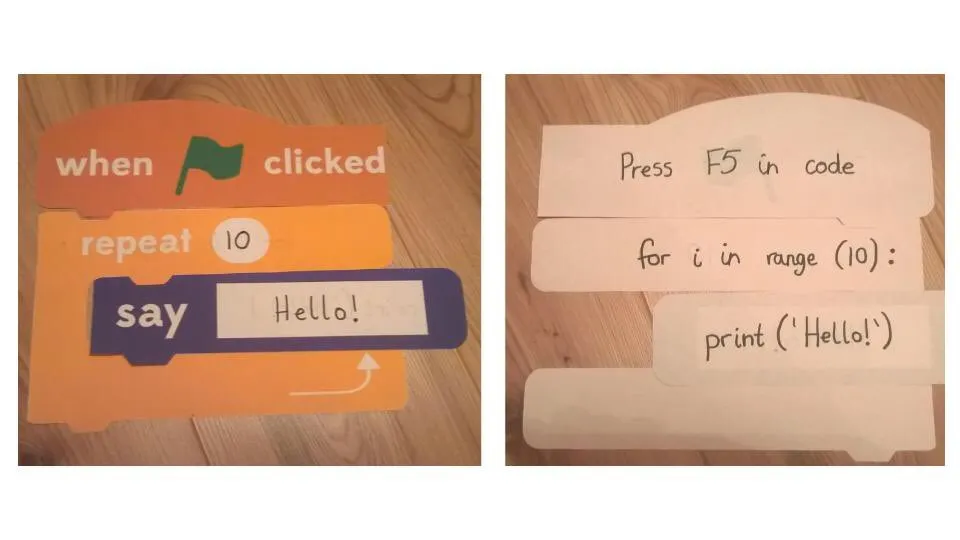 when clicked
repeat 10
say Hello!
Press F5 in code
for i in range (10):
print ('Hello!')